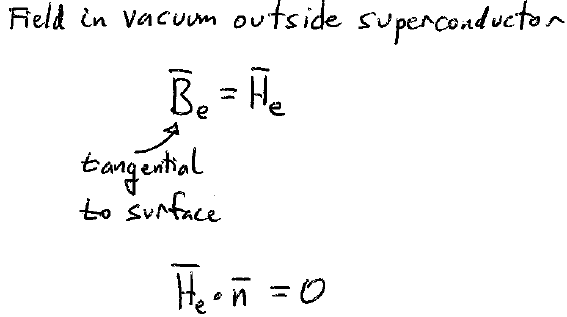 Field in vacuum outside superconductor
B̄e = H̄e
tangential
to surface
H̄e · n̄ = 0